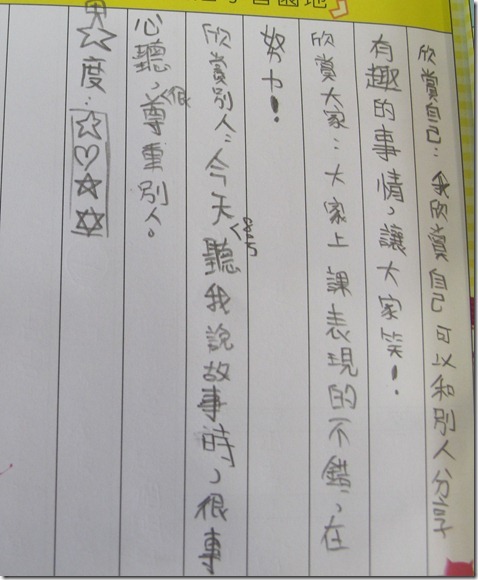 園地
欣賞自己：我欣賞自己可以和別人分享
有趣的事情，讓大家笑！
欣賞大家：大家上課表現的不錯，在
努力！
欣賞別人：今天聽我說故事時，很事
心聽，很尊重別人。
☆度：☆♡☆✡